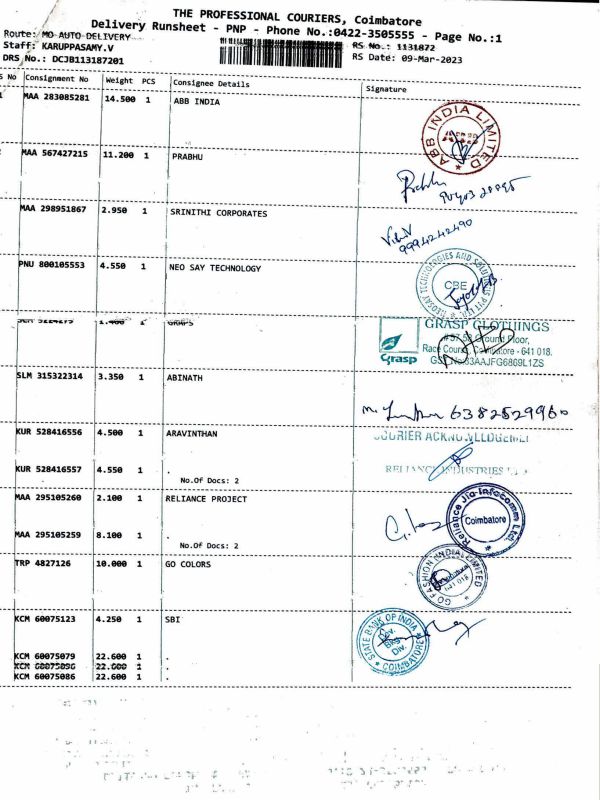 THE PROFESSIONAL COURIERS, Coimbatore
Delivery Runsheet - PNP - Phone No.:0422-3505555 - Page No.:1
Route: MO AUTO DELIVERY
RS No.: 1131872
Staff: KARUPPASAMY.V
RS Date: 09-Mar-2023
DRS No.: DCJB113187201
S No Consignment No Weight PCS Consignee Details Signature
1 MAA 283085281 14.500 1 ABB INDIA
ABB INDIA LIMITED
MAA 567427215 11.200 1 PRABHU
Prabhu
MAA 298951867 2.950 1 SRINITHI CORPORATES
9994242490
PNU 800105553 4.550 1 NEO SAY TECHNOLOGY
NEOSAY TECHNOLOGIES AND SOLUTIONS PVT LTD.
CBE
1.400 1
GRASP CLOTHINGS
Ground Floor,
Race Course, Coimbatore - 641 018.
Grasp
SLM 315322314 3.350 1 ABINATH
6382529960
KUR 528416556 4.500 1 ARAVINTHAN
COURIER ACKNOWLEDGEMENT
KUR 528416557 4.550 1 .
No.Of Docs: 2
RELIANCE INDUSTRIES
MAA 295105260 2.100 1 RELIANCE PROJECT
Reliance Jio Infocomm Ltd.
Coimbatore
MAA 295105259 8.100 1 .
No.Of Docs: 2
TRP 4827126 10.000 1 GO COLORS
GO FASHION INDIA LIMITED
KCM 60075123 4.250 1 SBI
STATE BANK OF INDIA
Gov. Bkg Div.
COIMBATORE
KCM 60075079 22.600 1 .
KCM 60075096 22.600 1 .
KCM 60075086 22.600 1 .